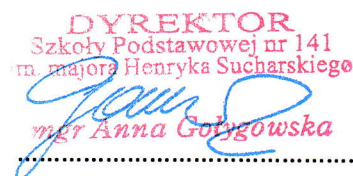 DYREKTOR
Szkoły Podstawowej nr 141
im. majora Henryka Sucharskiego
mgr Anna Gołygowska